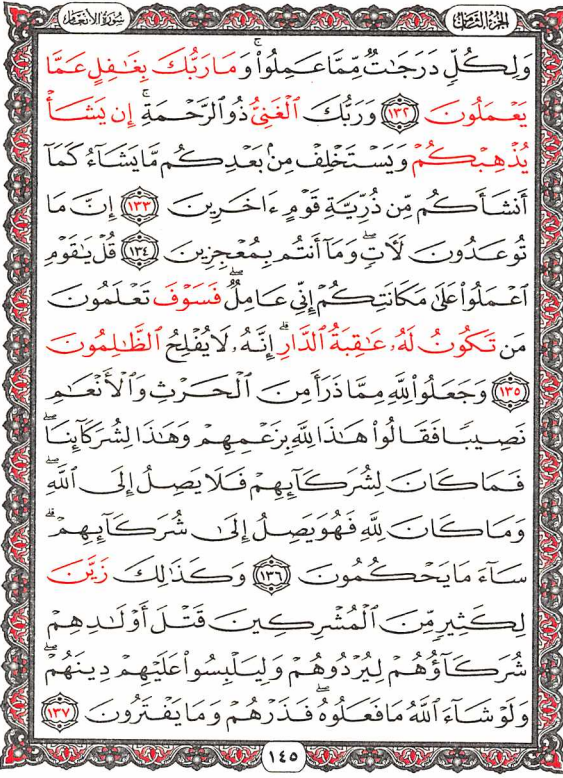 سُورَةُ الأَنْعَامِ
الجُزْءُ الثَّامِنُ
وَلِكُلٍّ دَرَجَٰتٌ مِّمَّا عَمِلُوا۟ ۚ وَمَا رَبُّكَ بِغَٰفِلٍ عَمَّا
يَعْمَلُونَ ﴿١٣٢﴾ وَرَبُّكَ ٱلْغَنِىُّ ذُو ٱلرَّحْمَةِ ۚ إِن يَشَأْ
يُذْهِبْكُمْ وَيَسْتَخْلِفْ مِنۢ بَعْدِكُم مَّا يَشَآءُ كَمَآ
أَنشَأَكُم مِّن ذُرِّيَّةِ قَوْمٍ ءَاخَرِينَ ﴿١٣٣﴾ إِنَّ مَا
تُوعَدُونَ لَءَاتٍ ۖ وَمَآ أَنتُم بِمُعْجِزِينَ ﴿١٣٤﴾ قُلْ يَٰقَوْمِ
ٱعْمَلُوا۟ عَلَىٰ مَكَانَتِكُمْ إِنِّى عَامِلٌ ۖ فَسَوْفَ تَعْلَمُونَ
مَن تَكُونُ لَهُۥ عَٰقِبَةُ ٱلدَّارِ ۗ إِنَّهُۥ لَا يُفْلِحُ ٱلظَّٰلِمُونَ
﴿١٣٥﴾ وَجَعَلُوا۟ لِلَّهِ مِمَّا ذَرَأَ مِنَ ٱلْحَرْثِ وَٱلْأَنْعَٰمِ
نَصِيبًا فَقَالُوا۟ هَٰذَا لِلَّهِ بِزَعْمِهِمْ وَهَٰذَا لِشُرَكَآئِنَا ۖ
فَمَا كَانَ لِشُرَكَآئِهِمْ فَلَا يَصِلُ إِلَى ٱللَّهِ ۖ
وَمَا كَانَ لِلَّهِ فَهُوَ يَصِلُ إِلَىٰ شُرَكَآئِهِمْ ۗ
سَآءَ مَا يَحْكُمُونَ ﴿١٣٦﴾ وَكَذَٰلِكَ زَيَّنَ
لِكَثِيرٍ مِّنَ ٱلْمُشْرِكِينَ قَتْلَ أَوْلَٰدِهِمْ
شُرَكَآؤُهُمْ لِيُرْدُوهُمْ وَلِيَلْبِسُوا۟ عَلَيْهِمْ دِينَهُمْ ۖ
وَلَوْ شَآءَ ٱللَّهُ مَا فَعَلُوهُ ۖ فَذَرْهُمْ وَمَا يَفْتَرُونَ ﴿١٣٧﴾
١٤٥